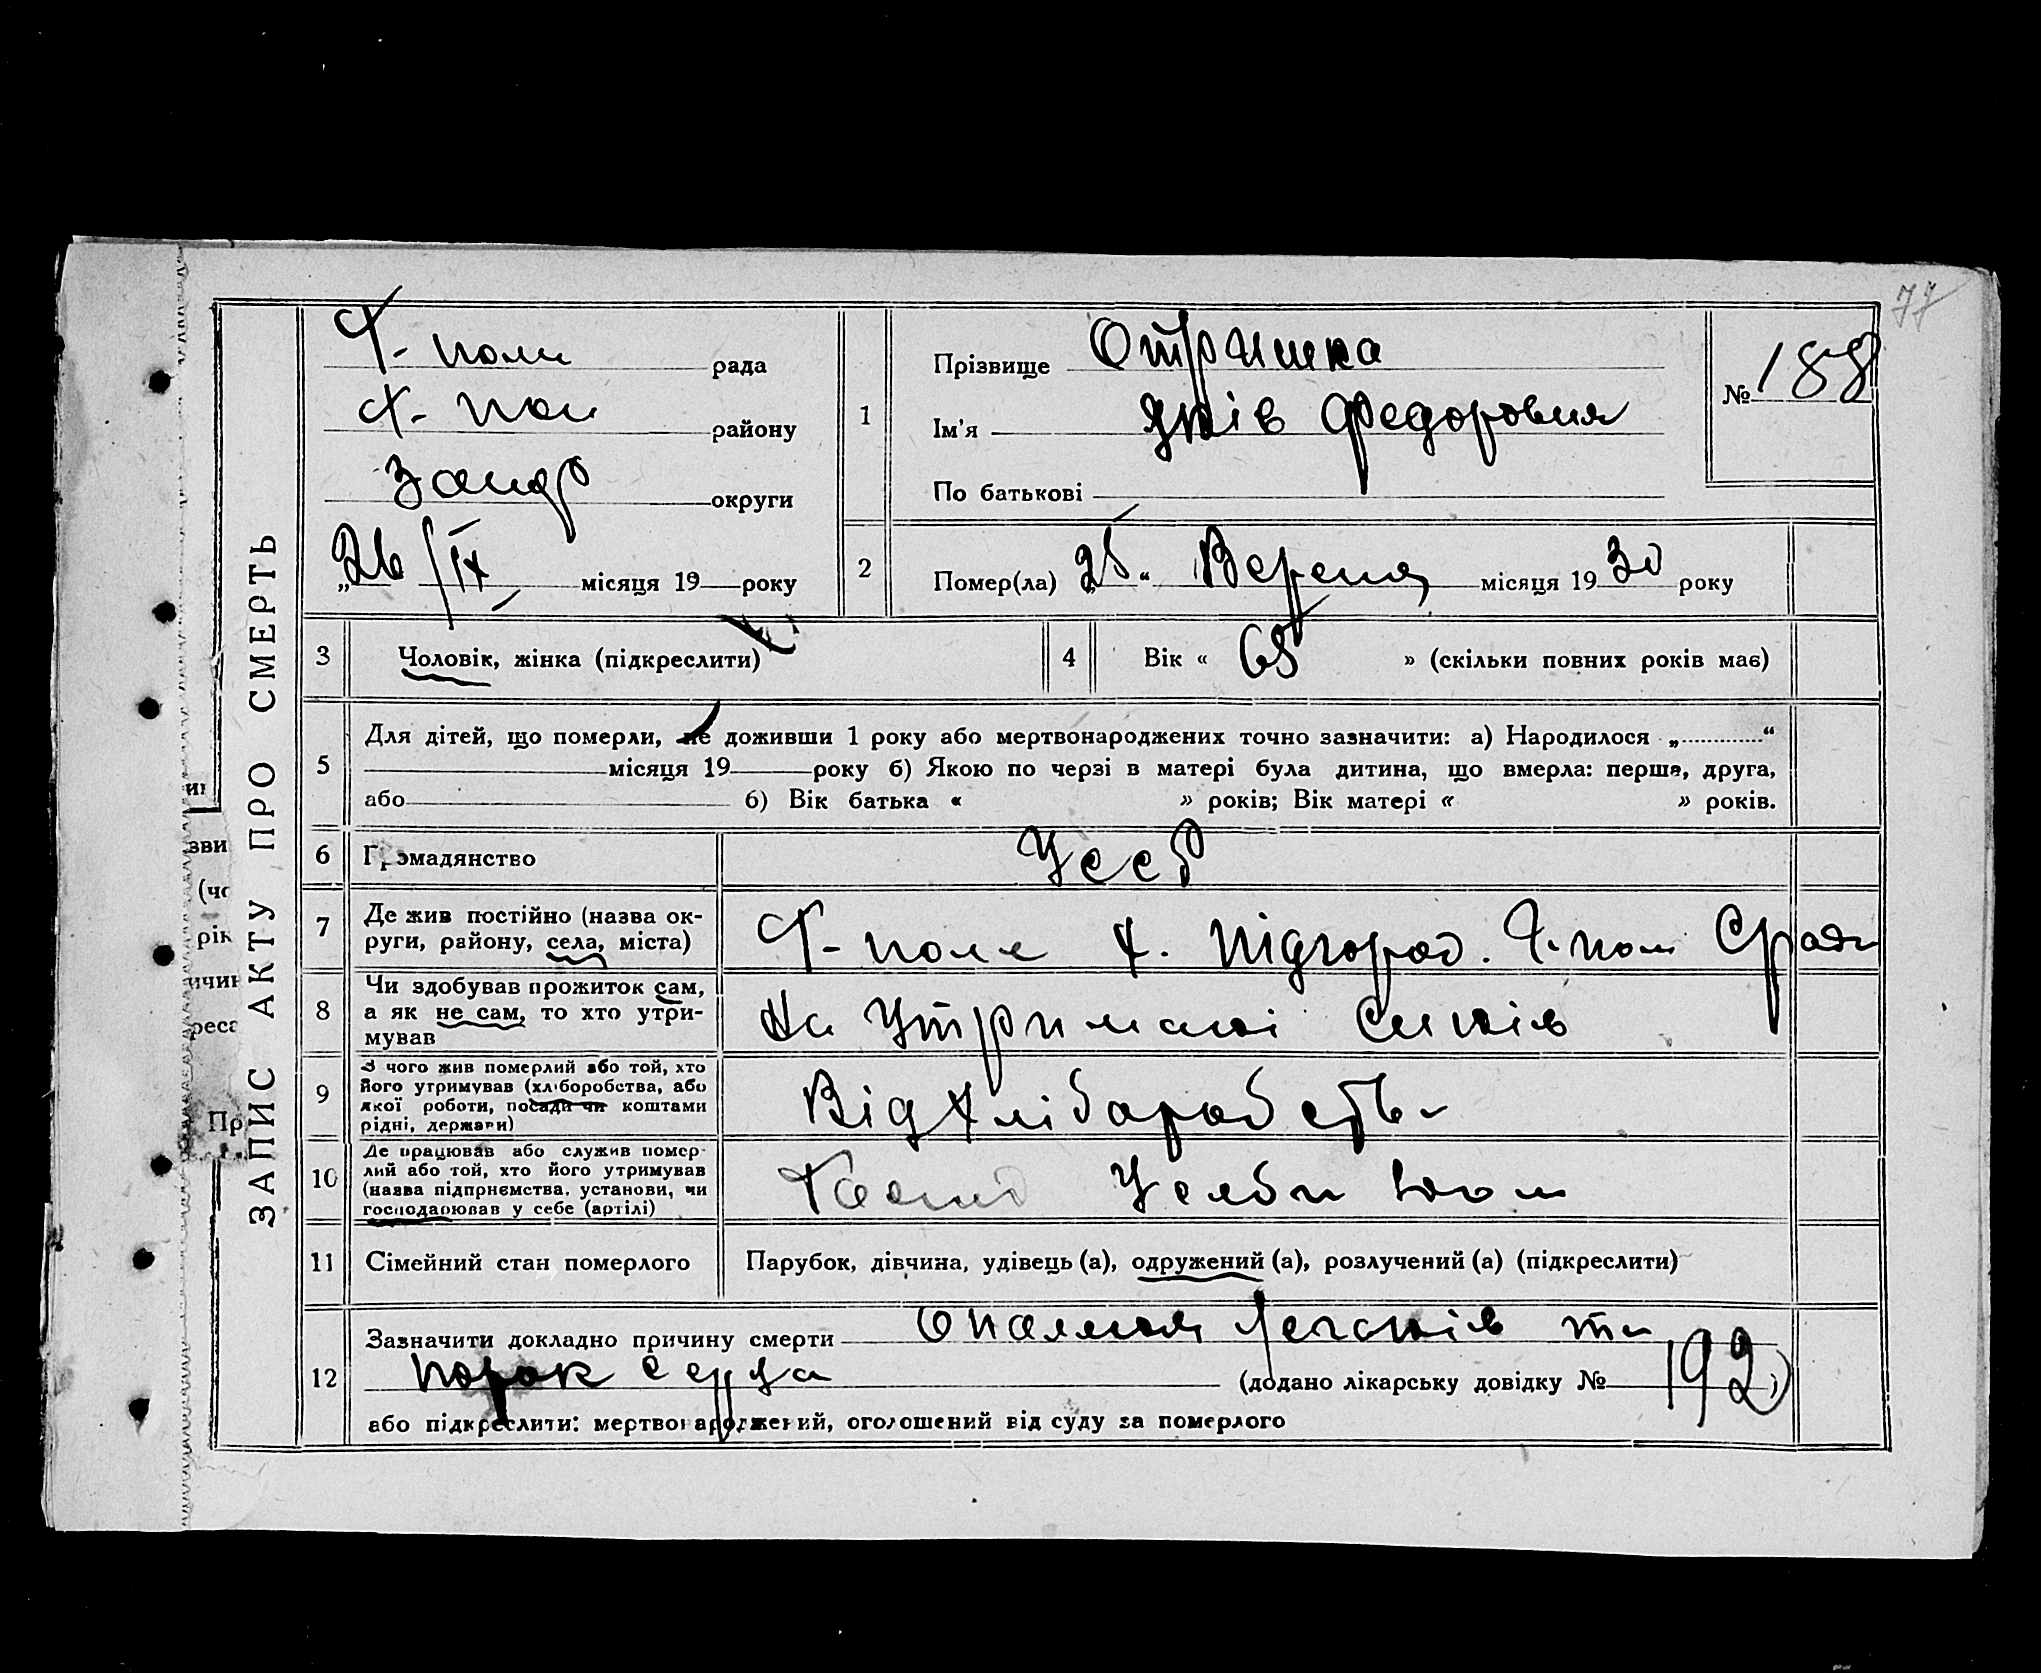 77
Г- поли рада
Г- пол району
Запор округи
„26 /IX місяця 19 року
ЗАПИС АКТУ ПРО СМЕРТЬ
1
Прізвище Отришка
Ім'я Яків Федоровия
По батькові
№ 188
2
Помер(ла) „25“ Вересня місяця 19 30 року
3 Чоловік, жінка (підкреслити)
4 Вік « 65 » (скільки повних років має)
5
Для дітей, що померли, не доживши 1 року або мертвонароджених точно зазначити: а) Народилося „ “
місяця 19 року б) Якою по черзі в матері була дитина, що вмерла: перша, друга,
або б) Вік батька « » років; Вік матері « » років.
6 Громадянство Усср
7 Де жив постійно (назва ок-
руги, району, села, міста)
Г- поле х. Підгород. Г- пол Сради
8 Чи здобував прожиток сам,
а як не сам, то хто утри-
мував
На Утримані Синів
9 З чого жив померлий або той, хто
його утримував (хліборобства, або
якої роботи, посади чи коштами
рідні, держави)
Від Хліборобства
10 Де працював або служив помер-
лий або той, хто його утримував
(назва підприємства, установи, чи
господарював у себе (артілі)
11 Сімейний стан померлого Парубок, дівчина, удівець (а), одружений (а), розлучений (а) (підкреслити)
12 Зазначити докладно причину смерти легенів та
порок серца (додано лікарську довідку № 192)
або підкреслити: мертвонароджений, оголошений від суду за померлого